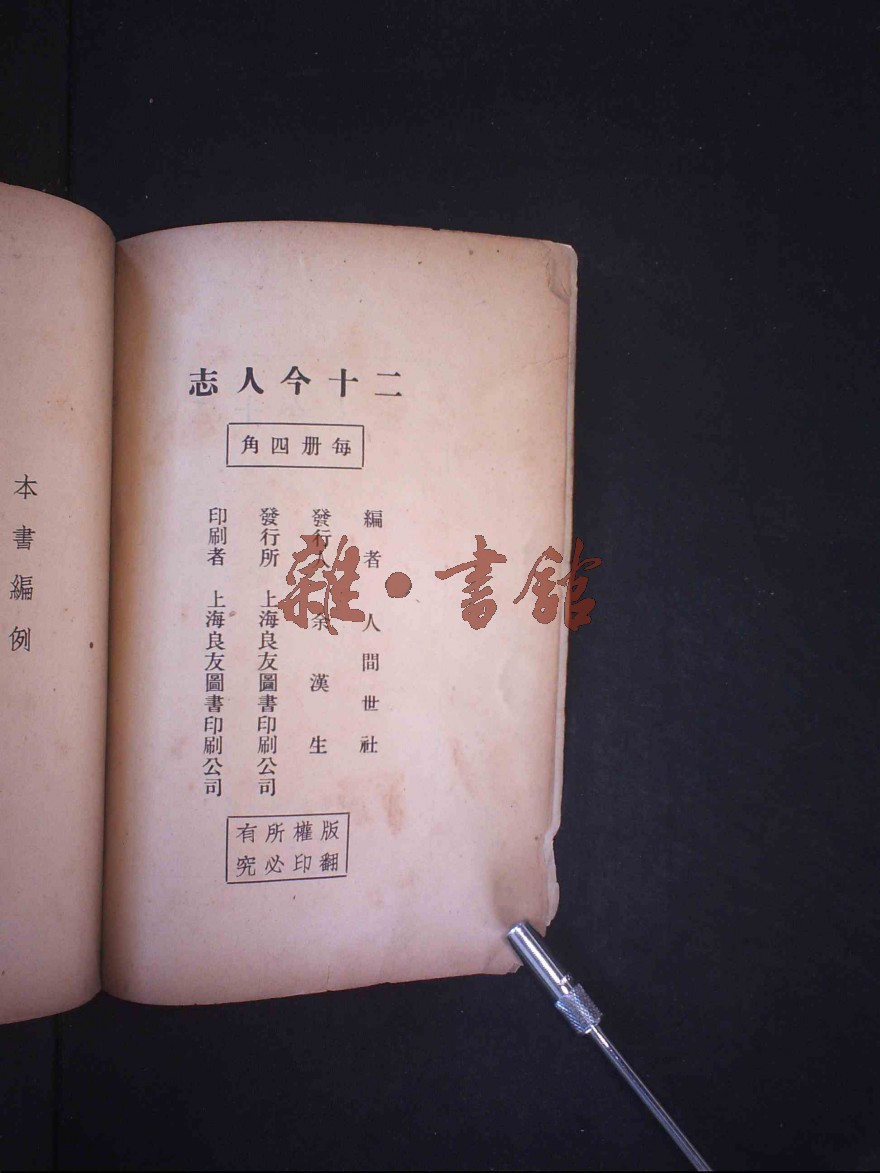 二十今人志
每册四角
編者 人間世社
發行人 余漢生
發行所 上海良友圖書印刷公司
印刷者 上海良友圖書印刷公司
版權所有
翻印必究
本書編例
雜·書館